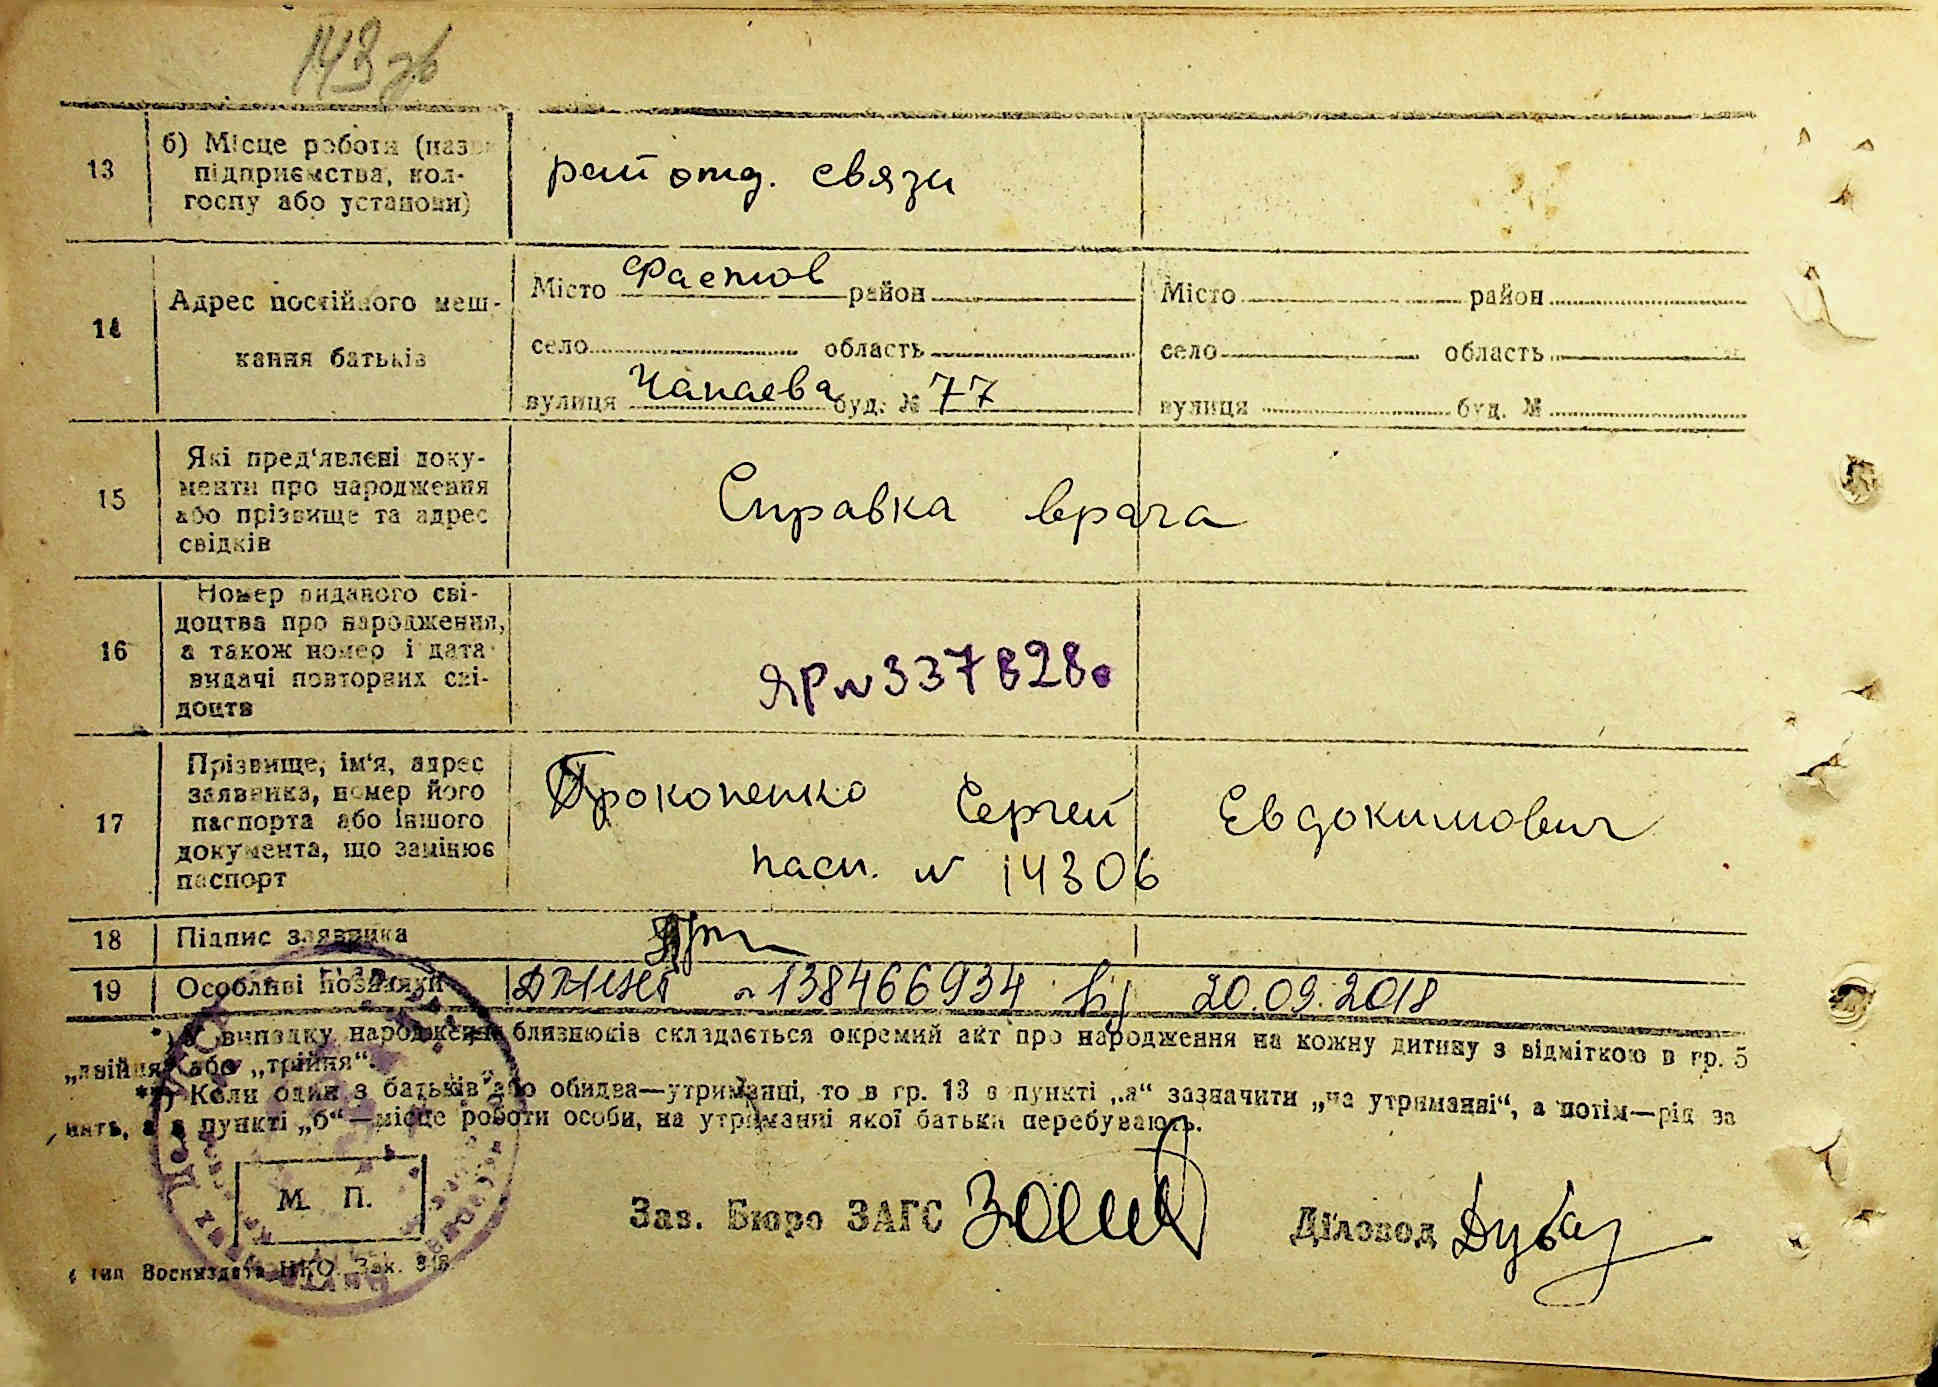 143 зв
13
б) Місце роботи (назва
підприємства, кол-
госпу або установи)
рай отд. связи
14
Адрес постійного меш-
кання батьків
Місто Фастов район
село область
вулиця Чапаева буд. № 77
Місто район
село область
вулиця буд. №
15
Які пред'явлені доку-
менти про народження
або прізвище та адрес
свідків
Справка врача
16
Номер виданого сві-
доцтва про народження,
а також номер і дата
видачі повторних сві-
доцтв
ЯР №
17
Прізвище, ім'я, адрес
заявника, номер його
паспорта або іншого
документа, що замінює
паспорт
Прокопенко Сергей Евдокимович
пасп. № 14306
18
Підпис заявника
19
Особливі позначки
№ 138466934 20.09.2018
*) У випадку народження близнюків складається окремий акт про народження на кожну дитину з відміткою в гр. 5
„двійня“ або „трійня“.
**) Коли один з батьків або обидва—утриманці, то в гр. 13 в пункті „а“ зазначити „на утриманні“, а потім—рід за
нять, а в пункті „б“—місце роботи особи, на утриманні якої батьки перебувають.
М. П.
Зав. Бюро ЗАГС
Діловод Дубау
тип Воениздата НКО. Зак.